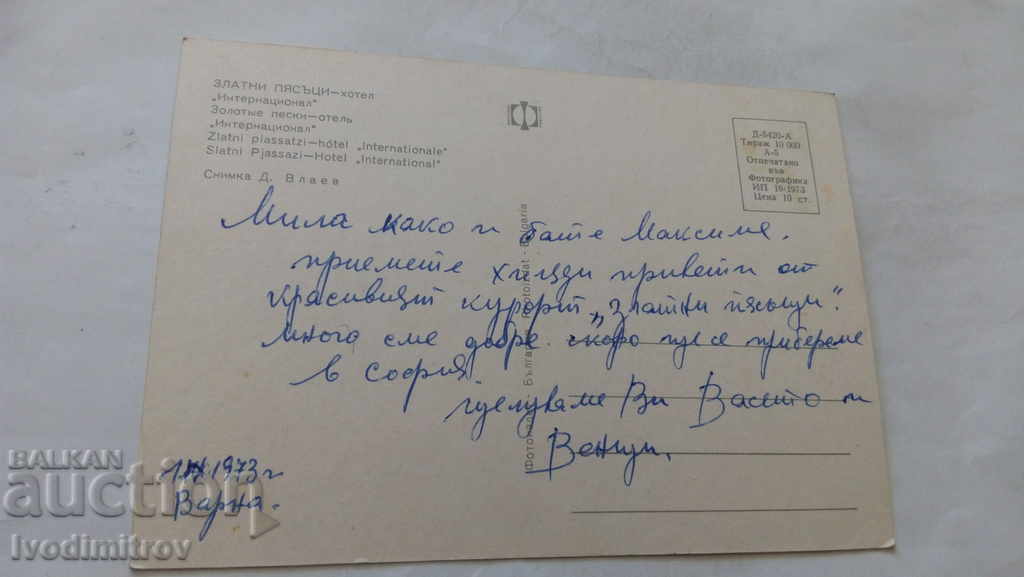 ЗЛАТНИ ПЯСЪЦИ—хотел
„Интернационал"
Золотые пески—отель
„Интернационал"
Zlatni piassatzi—hôtel „Internationale"
Slatni Pjassazi—Hotel „International"
Снимка Д. Влаев
Д-5420-А
Тираж 10 000
А-5
Отпечатано
във
Фотографика
ИП 10-1973
Цена 10 ст.
Мила како и бате Максиме.
приемете хиляди привети от
красивият курорт „Златни пясъци".
много сме добре. скоро ще се приберем
в София.
целуваме Ви Васето и
Венци.
1973 г
Варна.
Български Fotoizdat - Bulgaria
BALKAN
auction
Ivodimitrov